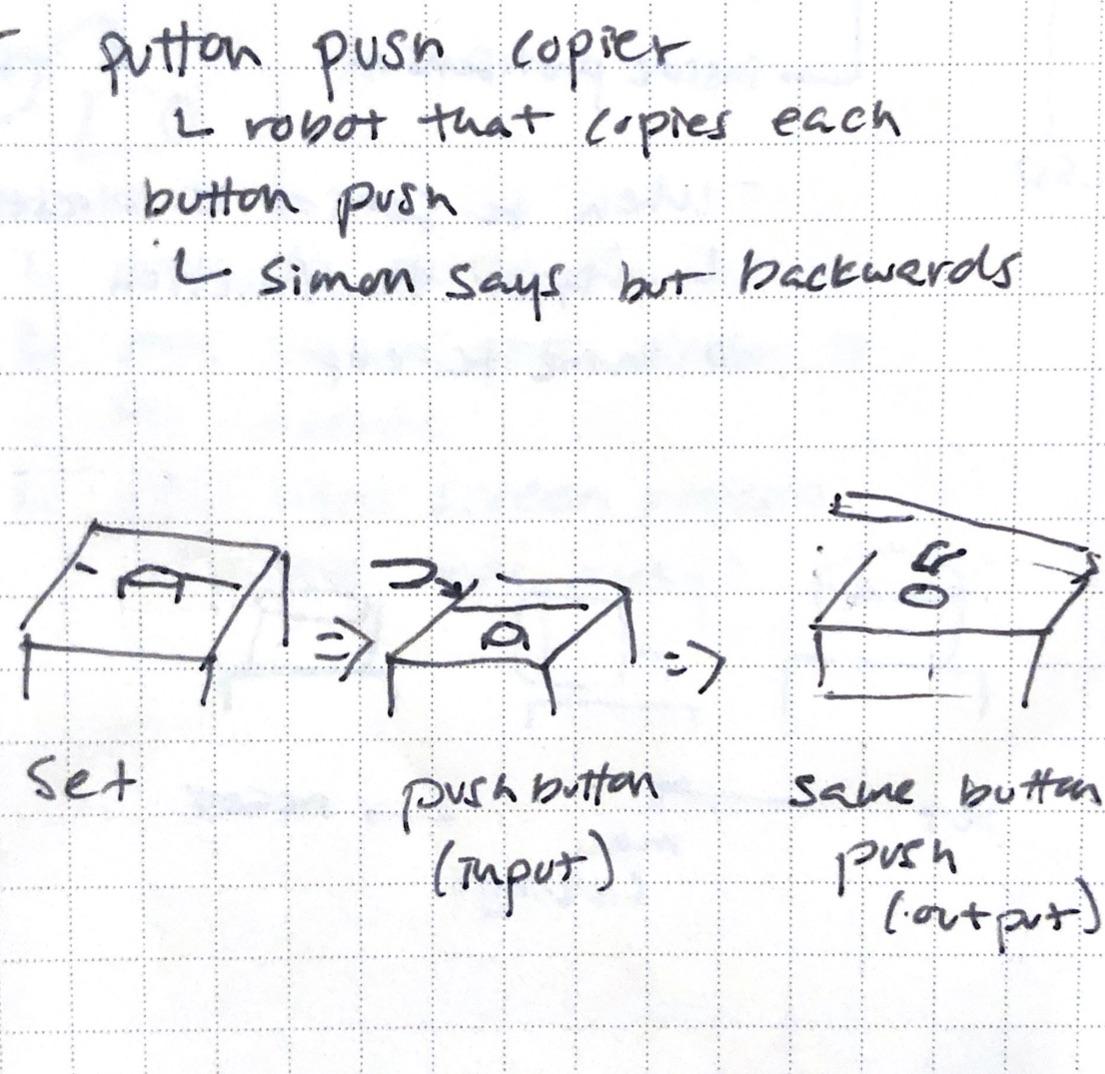 putton push copier
robot that copies each
button push
simon says but backwards
Set
push button
(input)
same button
push
(output)